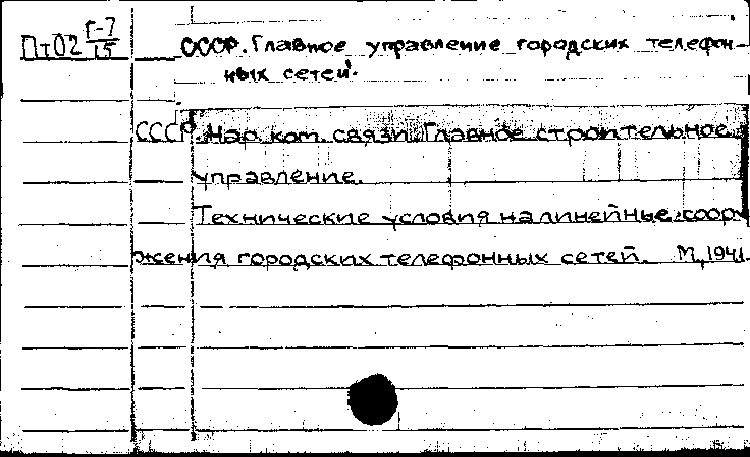 Пт02 Г-7/15
СССР. Главное управление городских телефон-
ных сетей.
СССР. Нар. ком. связи. Главное строительное
управление.
Технические условия на линейные соору-
жения городских телефонных сетей. М, 1941.